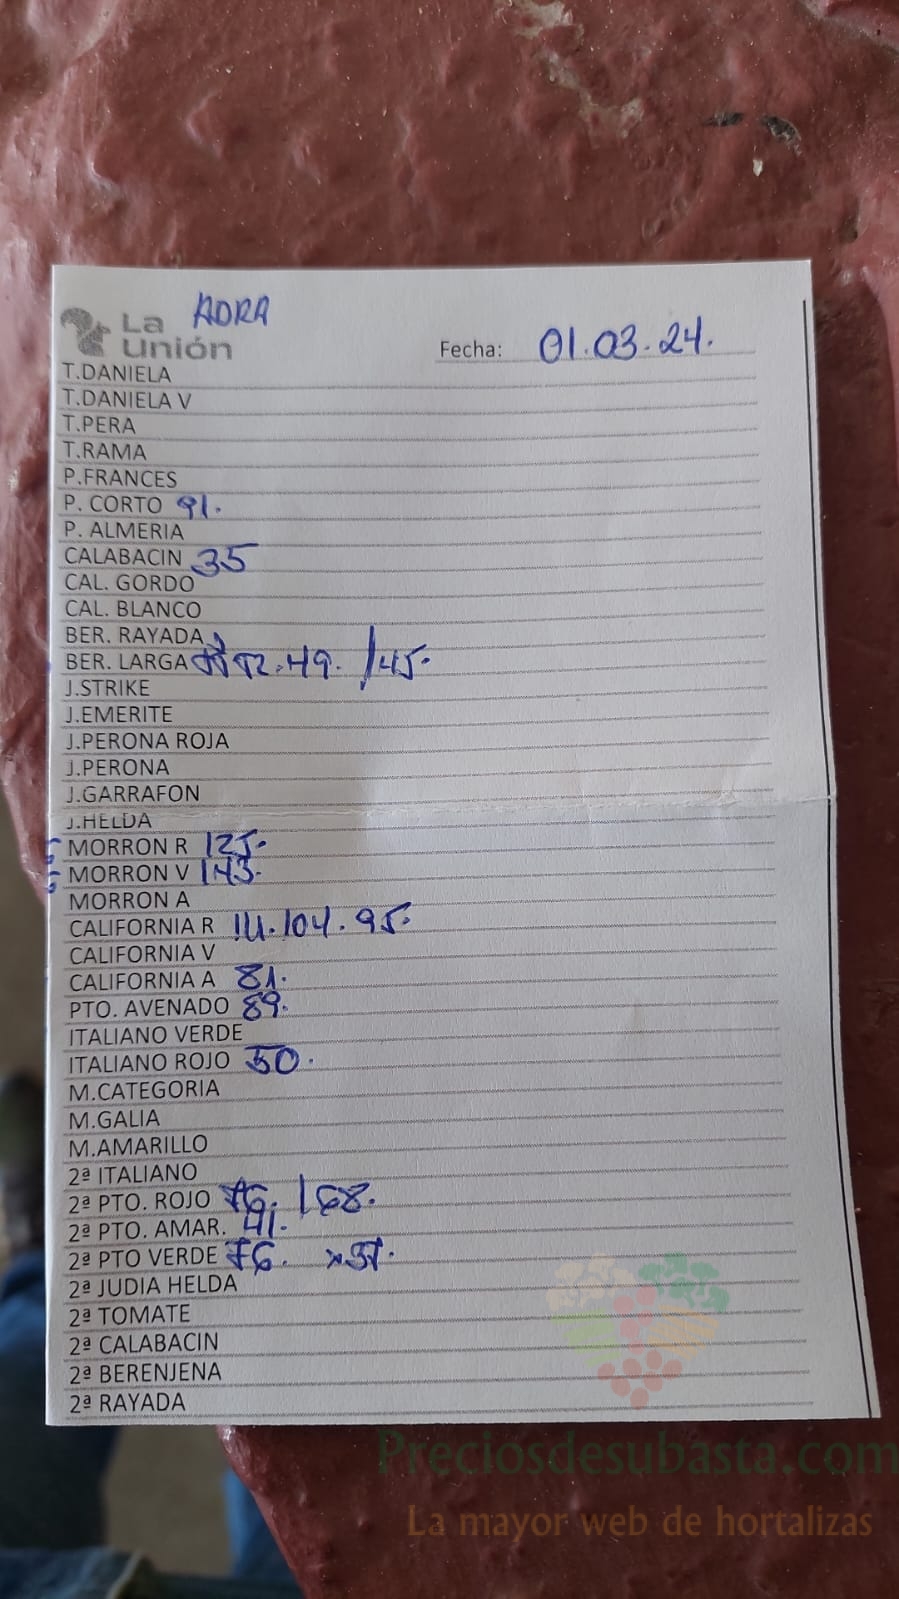 ADRA
La Unión
Fecha: 01.03.24.
T.DANIELA
T.DANIELA V
T.PERA
T.RAMA
P.FRANCES
P. CORTO 91.
P. ALMERIA
CALABACIN 35
CAL. GORDO
CAL. BLANCO
BER. RAYADA
BER. LARGA 49. /45.
J.STRIKE
J.EMERITE
J.PERONA ROJA
J.PERONA
J.GARRAFON
J.HELDA
MORRON R 125.
MORRON V 143.
MORRON A
CALIFORNIA R 111.104.95.
CALIFORNIA V
CALIFORNIA A 81.
PTO. AVENADO 89.
ITALIANO VERDE
ITALIANO ROJO 50.
M.CATEGORIA
M.GALIA
M.AMARILLO
2ª ITALIANO
2ª PTO. ROJO 76. /68.
2ª PTO. AMAR. 41.
2ª PTO VERDE 76. x37.
2ª JUDIA HELDA
2ª TOMATE
2ª CALABACIN
2ª BERENJENA
2ª RAYADA
Preciosdesubasta.com
La mayor web de hortalizas